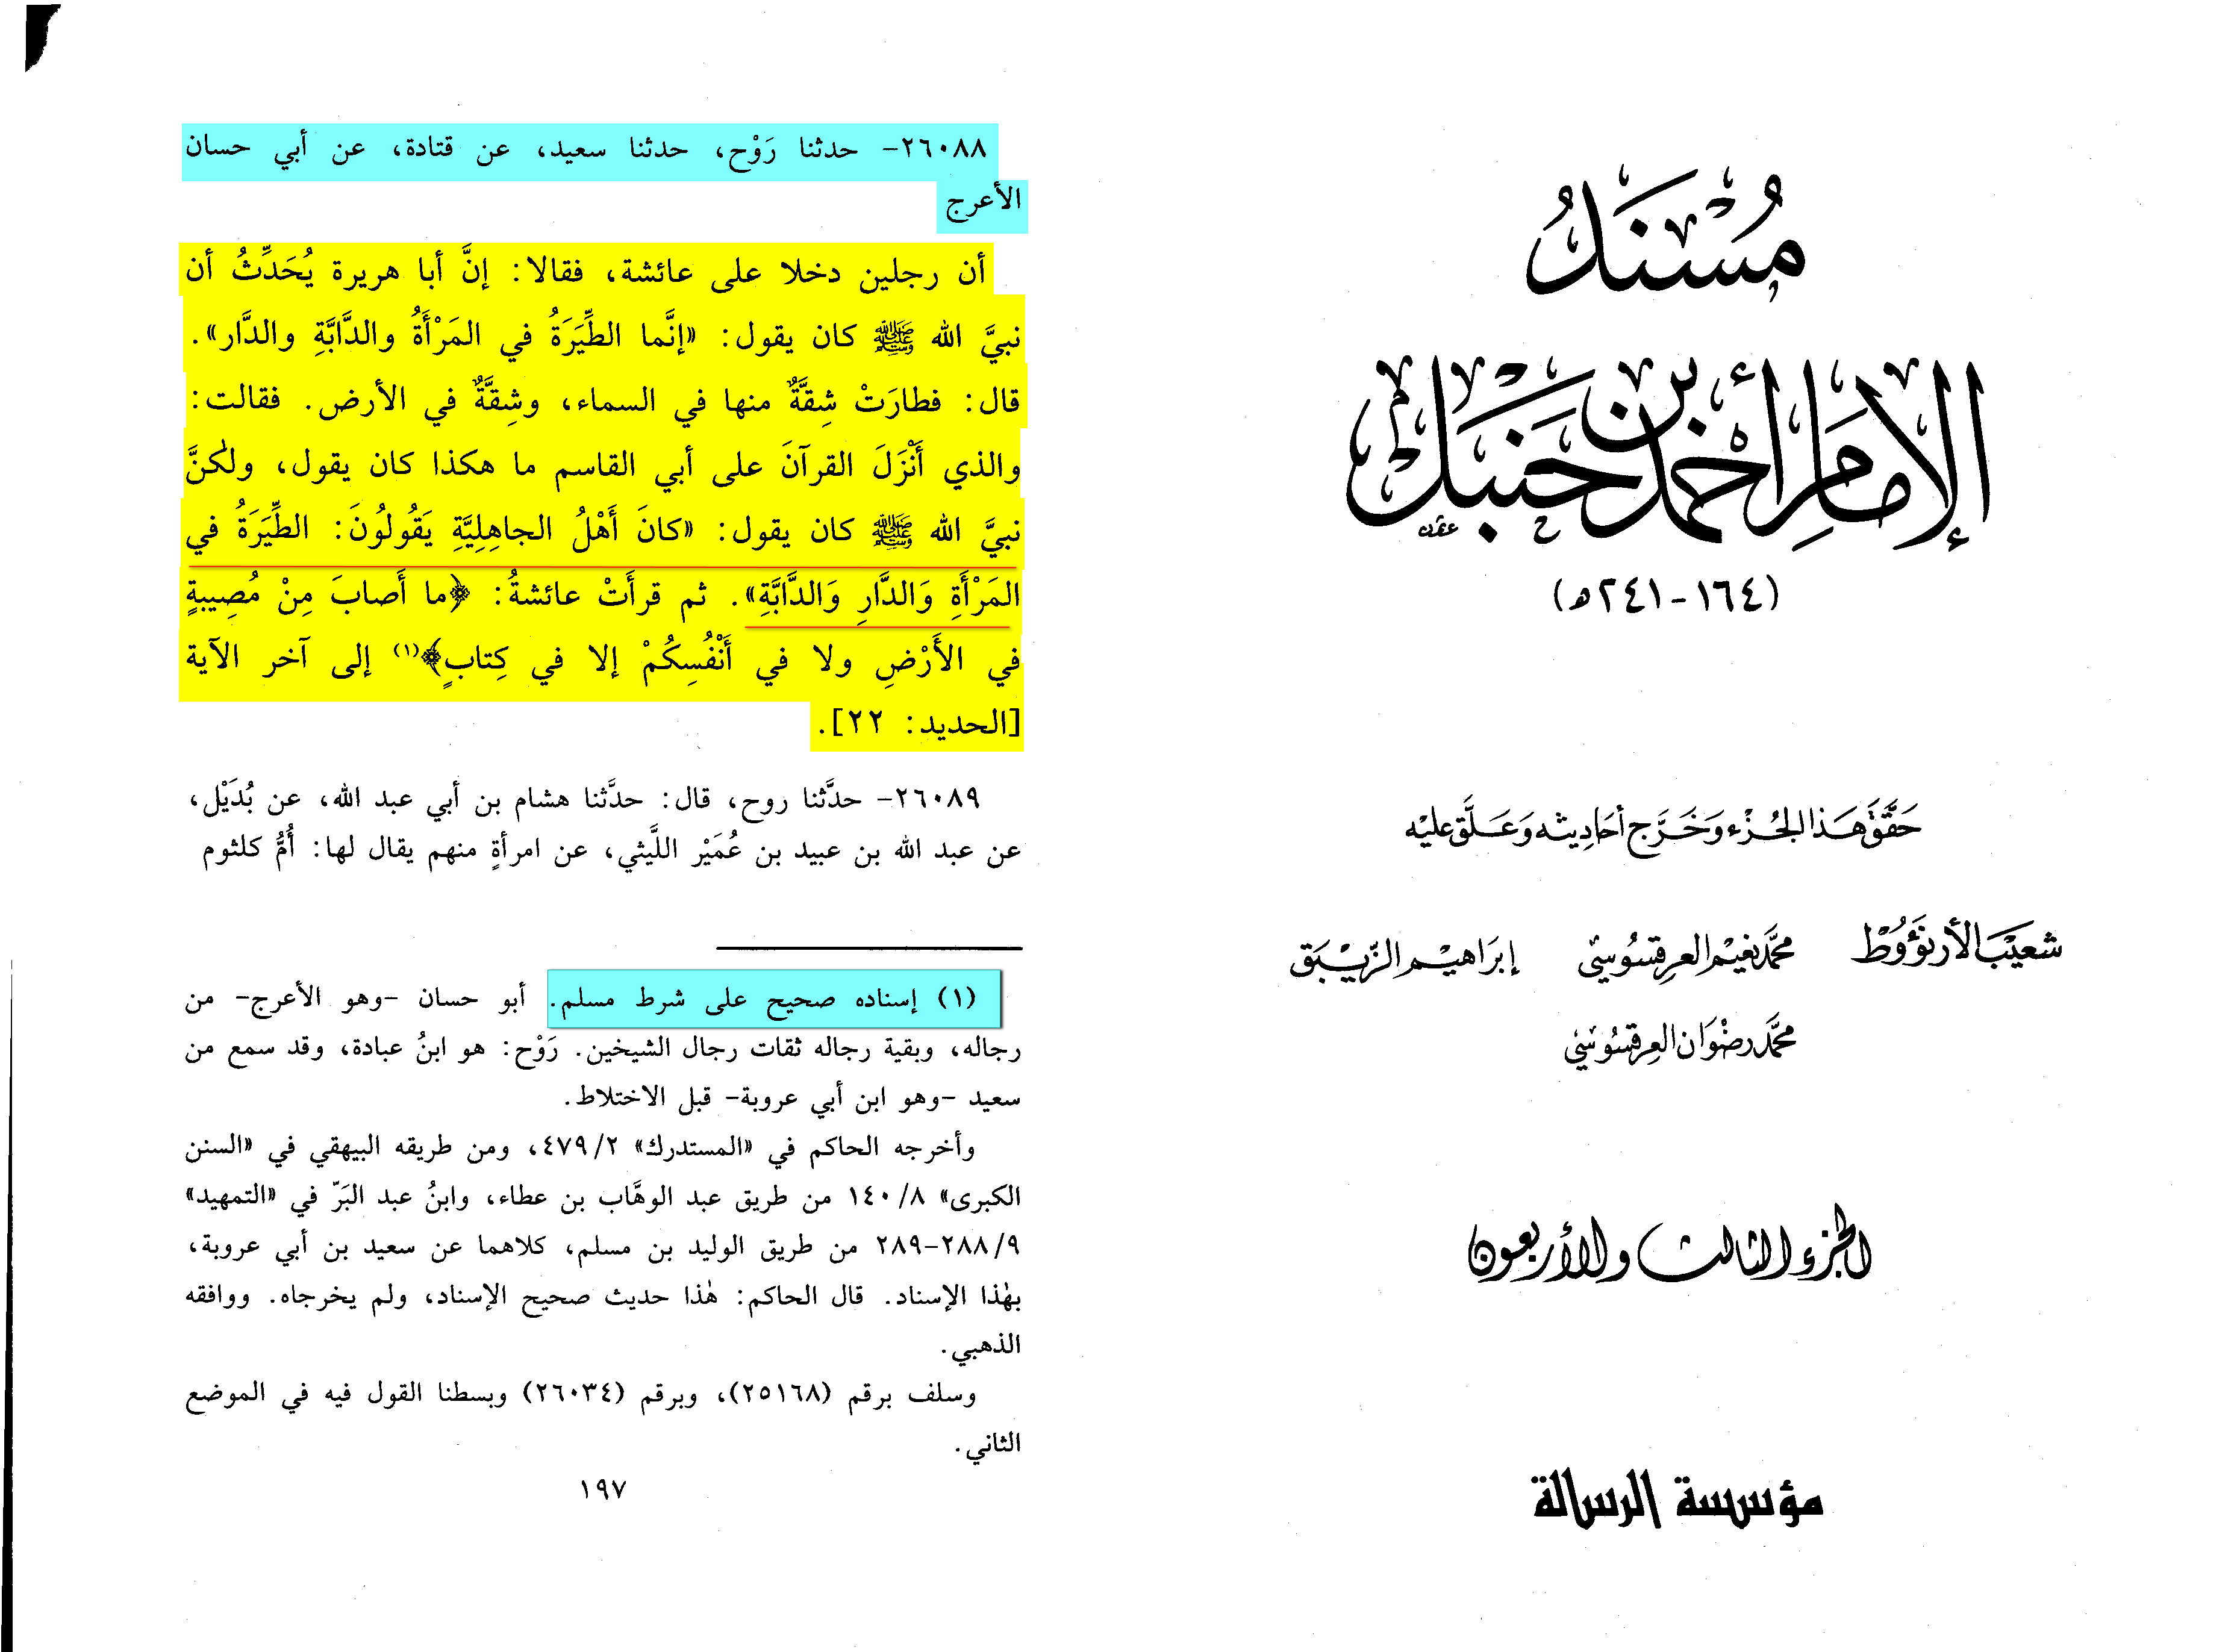 مُسْنَدُ
الإمَامِ أحْمَد بن حَنبَل
(١٦٤-٢٤١ه)
حَقَّقَ هَذا الجُزْء وَخَرَّج أحَاديثه وَعَلَّق عليْه
شعَيْبَ الأرنؤُوُط محمَّد نعَيْم العرقسُوسيّ إبرَاهيْم الزّيْبَق
محمَّد رضْوَان العِرقسُوسيّ
الجزء الثالث والأربعون
مؤسسة الرسالة
٢٦٠٨٨- حدثنا رَوْح، حدثنا سعيد، عن قتادة، عن أبي حسان
الأعرج
أن رجلين دخلا على عائشة، فقالا: إنَّ أبا هريرة يُحَدِّثُ أن
نبيَّ الله ﷺ كان يقول: «إنَّما الطِّيَرَةُ في المَرْأَةُ والدَّابَّةِ والدَّار».
قال: فطارَتْ شِقَّةٌ منها في السماء، وشِقَّةٌ في الأرض. فقالت:
والذي أَنْزَلَ القرآنَ على أبي القاسم ما هكذا كان يقول، ولكنَّ
نبيَّ الله ﷺ كان يقول: «كانَ أَهْلُ الجاهِلِيَّةِ يَقُولُونَ: الطِّيَرَةُ في
المَرْأَةِ وَالدَّارِ وَالدَّابَّةِ». ثم قرأَتْ عائشةُ: ﴿ما أَصابَ مِنْ مُصِيبةٍ
في الأَرْضِ ولا في أَنْفُسِكُمْ إلا في كِتابٍ﴾(١) إلى آخر الآية
[الحديد: ٢٢].
٢٦٠٨٩- حدَّثنا روح، قال: حدَّثنا هشام بن أبي عبد الله، عن بُدَيْل،
عن عبد الله بن عبيد بن عُمَيْر اللَّيثي، عن امرأةٍ منهم يقال لها: أُمُّ كلثوم
(١) إسناده صحيح على شرط مسلم. أبو حسان -وهو الأعرج- من
رجاله، وبقية رجاله ثقات رجال الشيخين. رَوْح: هو ابنُ عبادة، وقد سمع من
سعيد -وهو ابن أبي عروبة- قبل الاختلاط.
وأخرجه الحاكم في «المستدرك» ٤٧٩/٢، ومن طريقه البيهقي في «السنن
الكبرى» ١٤٠/٨ من طريق عبد الوهَّاب بن عطاء، وابنُ عبد البَرّ في «التمهيد»
٢٨٨/٩-٢٨٩ من طريق الوليد بن مسلم، كلاهما عن سعيد بن أبي عروبة،
بهٰذا الإسناد. قال الحاكم: هٰذا حديث صحيح الإسناد، ولم يخرجاه. ووافقه
الذهبي.
وسلف برقم (٢٥١٦٨)، وبرقم (٢٦٠٣٤) وبسطنا القول فيه في الموضع
الثاني.
١٩٧